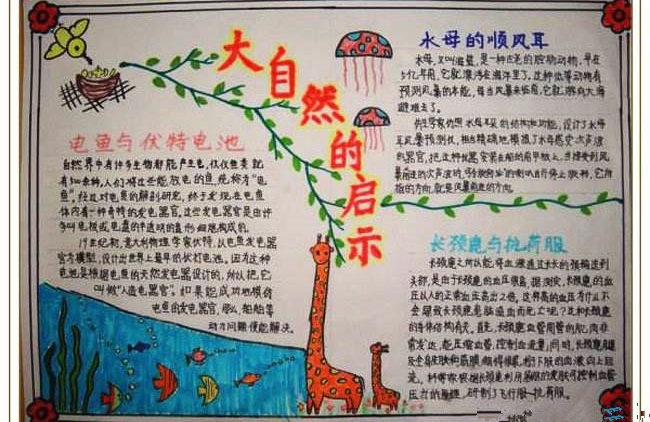 大自然的启示
电鱼与伏特电池
自然界中有许多生物都能产生电,仅仅鱼类就
有500余种,人们将这些能放电的鱼,统称为“电
鱼”。经过对电鱼的解剖研究,终于发现在电鱼
体内有一种奇特的发电器官。这些发电器官是由许
多叫电板或电盘的半透明的盘形细胞构成的。
19世纪初,意大利物理学家伏特,以电鱼发电器
官为模型,设计出世界上最早的伏打电池。因为这种
电池是根据电鱼的天然发电器设计的,所以把它
叫做“人造电器官”。如果能成功地模仿
电鱼的发电器官,那么,船舶等
动力问题便能解决。
水母的顺风耳
水母,又叫海蜇,是一种古老的腔肠动物,早在
5亿年前,它就漂浮在海洋里了。这种低等动物有
预测风暴的本能,每当风暴来临前,它就游向大海
避难去了。
科学家仿照水母耳朵的结构和功能,设计了水母
耳风暴预测仪,相当精确地模拟了水母感受次声波
的器官。把这种仪器安装在船的前甲板上,当接受到风
暴的次声波时,
指的方向,就是风暴前进的方向
长颈鹿与抗荷服
长颈鹿之所以能将血液通过长长的颈输送到
头部,是由于长颈鹿的血压很高。据测定,长颈鹿的血
压比人的正常血压高出2倍。这样高的血压为什么不
会导致长颈鹿患脑溢血而死亡呢?这和长颈鹿
的身体结构有关。首先,长颈鹿血管周围的肌肉非
常发达,能压缩血管,控制血流量;同时,长颈鹿腿
部及全身皮肤和筋膜绷得很紧,利于下肢的血液向上回
流。科学家根据长颈鹿利用紧绷的皮肤可控制血管
压力的原理,研制了飞行服—抗荷服。